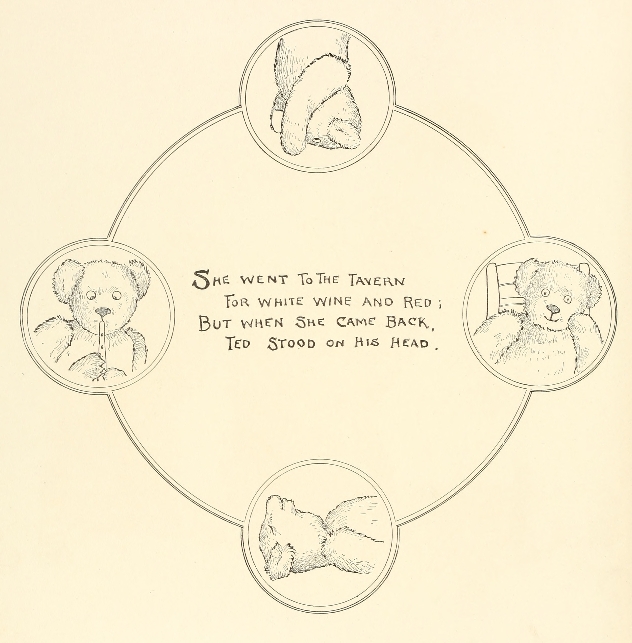 She went To The Tavern
For white wine and Red;
But when She Came Back,
Ted Stood on His Head.